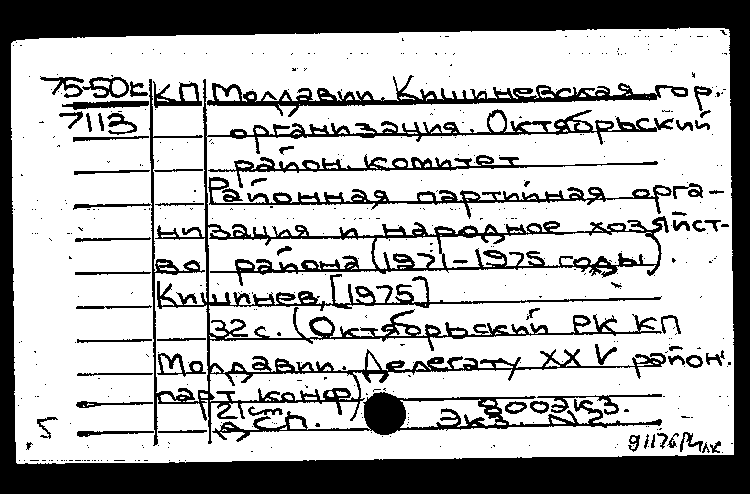 75-50к КП Молдавии. Кишиневская гор.
7113 организация. Октябрьский
район. комитет
Районная партийная орга-
низация и народное хозяйст-
во района (1971-1975 годы).
Кишинев, [1975].
32 с. (Октябрьский РК КП
Молдавии. Делегату XXV район.
парт. конф)
21 cm. 800экз.
СП. Экз. N2.
5